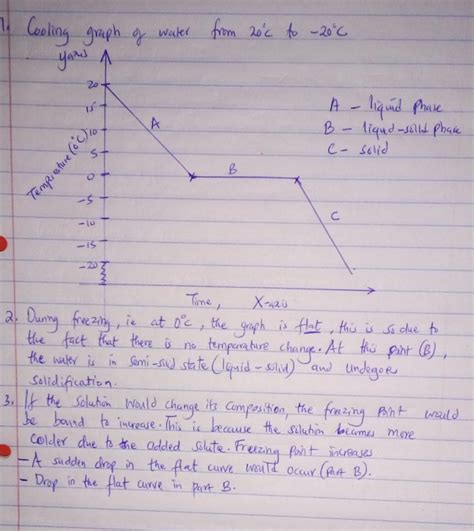 1. Cooling graph of water from 20°C to -20°C
yaxis
20
15
10
5
0
-5
-10
-15
-20
Temperature (°C)
A
B
C
A - liquid phase
B - liquid-solid phase
C - solid
Time, X-axis
2. During freezing, ie at 0°C, the graph is flat, this is so due to
the fact that there is no temperature change. At this point (B),
the water is in semi-solid state (liquid - solid) and undergoes
solidification.
3. If the solution would change its composition, the freezing point would
be bound to increase. This is because the solution becomes more
colder due to the added solute. Freezing Point increases
- A sudden drop in the flat curve would occur (part B).
- Drop in the flat curve in part B.